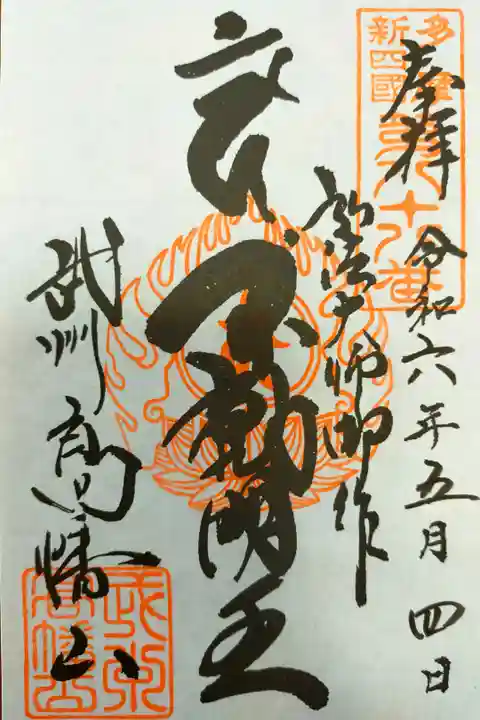 多摩
新四國
第八十八番
奉拝 令和六年五月四日
弘法大師御作
不動明王
武州 高幡山
武州
高幡山